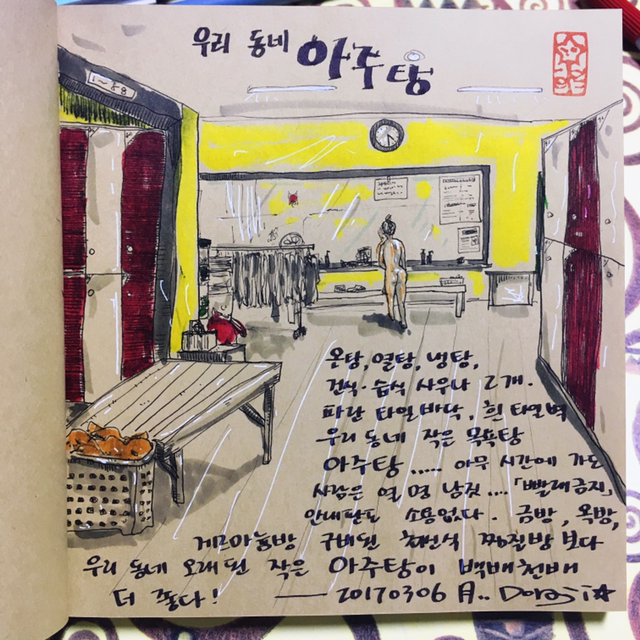 우리 동네 아주탕
1~88
온탕, 열탕, 냉탕,
건식·습식 사우나 2개.
파란 타일바닥, 흰 타일벽
우리 동네 작은 목욕탕
아주탕 ..... 아무 시간에 가도
사람은 열 명 남짓...「빨래금지」
안내판도 소용없다. 금방, 옥방,
게르마늄방 구비된 최신식 찜질방 보다
우리 동네 오래된 작은 아주탕이 백배천배
더 좋다! —— 20170306 月.. Doraji☆